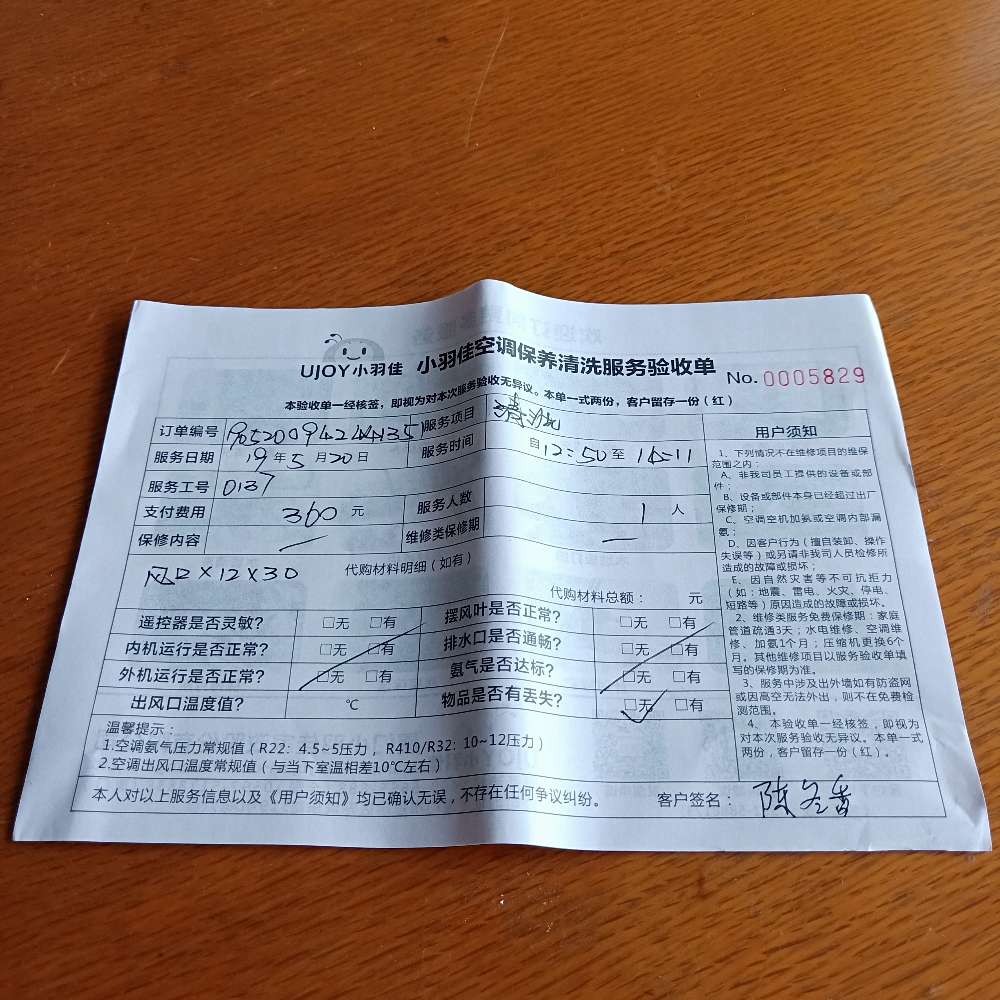 UJOY小羽佳 小羽佳空调保养清洗服务验收单 No. 0005829
本验收单一经核签，即视为对本次服务验收无异议。本单一式两份，客户留存一份（红）
订单编号 服务项目 清洗
服务日期 19年5月20日 服务时间 自12:50至14:11
服务工号 0137
支付费用 360元 服务人数 1人
保修内容 — 维修类保修期 —
风口×12×30 代购材料明细（如有）
代购材料总额： 元
遥控器是否灵敏？ □无 □有 摆风叶是否正常？ □无 □有
内机运行是否正常？ □无 □有 排水口是否通畅？ □无 □有
外机运行是否正常？ □无 □有 氨气是否达标？ □无 □有
出风口温度值？ ℃ 物品是否有丢失？ ☑无 □有
温馨提示：
1.空调氨气压力常规值（R22: 4.5~5压力，R410/R32: 10~12压力）
2.空调出风口温度常规值（与当下室温相差10℃左右）
本人对以上服务信息以及《用户须知》均已确认无误，不存在任何争议纠纷。 客户签名：陈冬香
用户须知
1、下列情况不在维修项目的维保
范围之内：
A、非我司员工提供的设备或部
件；
B、设备或部件本身已经超过出厂
保修期；
C、空调空机加氨或空调内部漏
氨；
D、因客户行为（擅自装卸、操作
失误等）或另请非我司人员检修所
造成的故障或损坏；
E、因自然灾害等不可抗拒力
（如：地震、雷电、火灾、停电、
短路等）原因造成的故障或损坏。
2、维修类服务免费保修期：家庭
管道疏通3天；水电维修、空调维
修、加氨1个月；压缩机更换6个
月。其他维修项目以服务验收单填
写的保修期为准。
3、服务中涉及出外墙如有防盗网
或因高空无法外出，则不在免费检
测范围。
4、本验收单一经核签，即视为
对本次服务验收无异议。本单一式
两份，客户留存一份（红）。